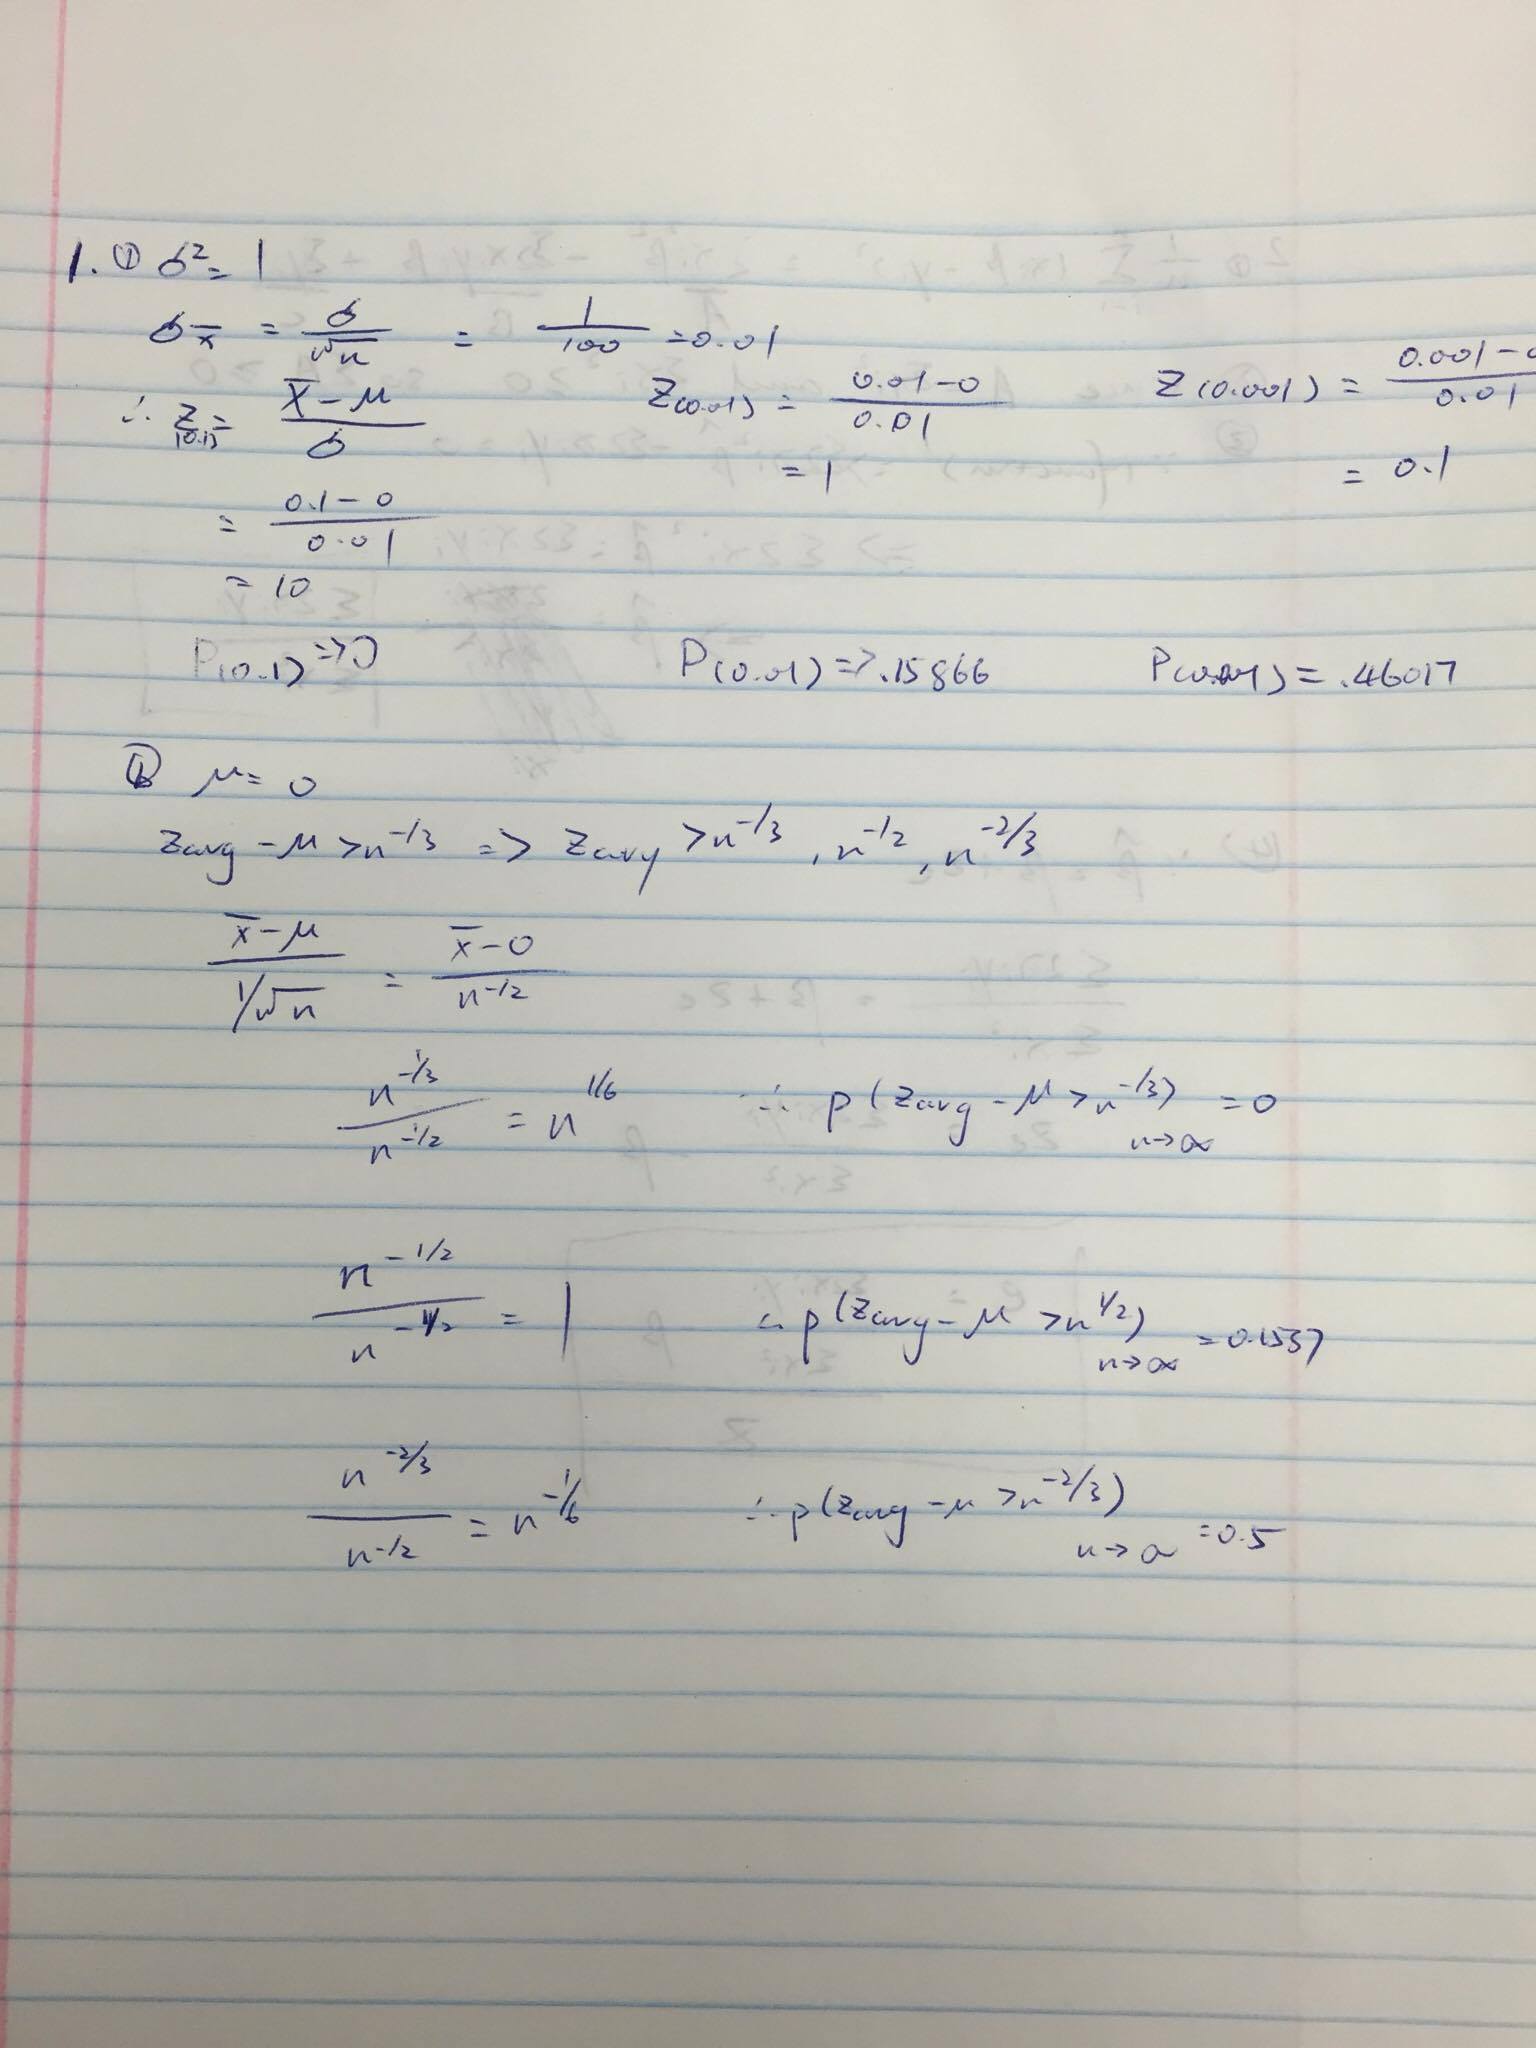 1. ① σ² = 1
σx̄ = σ/√n = 1/100 = 0.01
∴ Z(0.1) = (x̄ - μ)/σ    Z(0.01) = (0.01 - 0)/0.01    Z(0.001) = (0.001 - 0)/0.01
= (0.1 - 0)/0.01    = 1    = 0.1
= 10
P(0.1) => 0    P(0.01) => .15866    P(0.001) = .46017
ⓑ μ = 0
Zavg - μ > n^(-1/3) => Zavg > n^(-1/3), n^(-1/2), n^(-2/3)
(x̄ - μ)/(1/√n) = (x̄ - 0)/n^(-1/2)
n^(-1/3)/n^(-1/2) = n^(1/6)    ∴ p(Zavg - μ > n^(-1/3)) n→∞ = 0
n^(-1/2)/n^(-1/2) = 1    ∴ p(Zavg - μ > n^(1/2)) n→∞ = 0.1537
n^(-2/3)/n^(-1/2) = n^(-1/6)    ∴ p(Zavg - μ > n^(-2/3)) n→∞ = 0.5